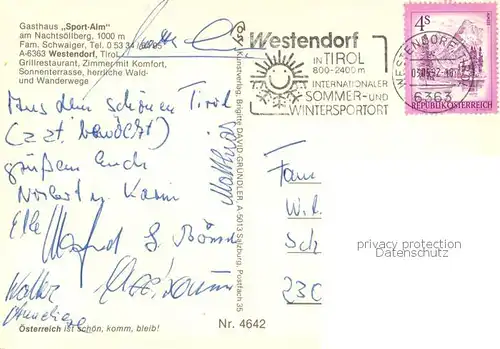 Gasthaus „Sport-Alm"
am Nachtsöllberg, 1000 m
Fam. Schwaiger, Tel. 0 53 34
A-6363 Westendorf, Tirol
Grillrestaurant, Zimmer mit Komfort,
Sonnenterrasse, herrliche Wald-
und Wanderwege
Westendorf
IN TIROL
800-2400 m
INTERNATIONALER
SOMMER- UND
WINTERSPORTORT
WESTENDORF
6363
4S
REPUBLIK ÖSTERREICH
Aus dem schönen Tirol
(z. zt. bewölkt)
grüßen Euch
Norbert u. Karin
Elke
Manfred
Walter
Matthias
Kunstverlag Brigitte DAVID-GRÜNDLER, A-5013 Salzburg, Postfach 35
Fam
W.
Sch
230
privacy protection
Datenschutz
Österreich ist schön, komm, bleib!
Nr. 4642